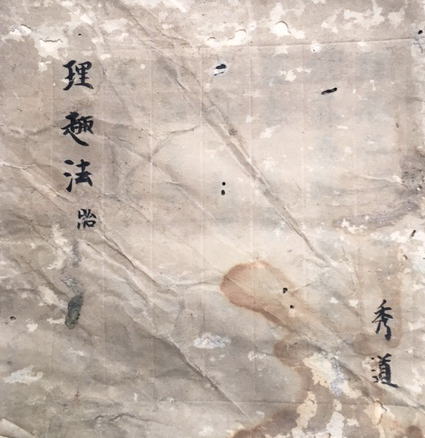 理趣法
秀道